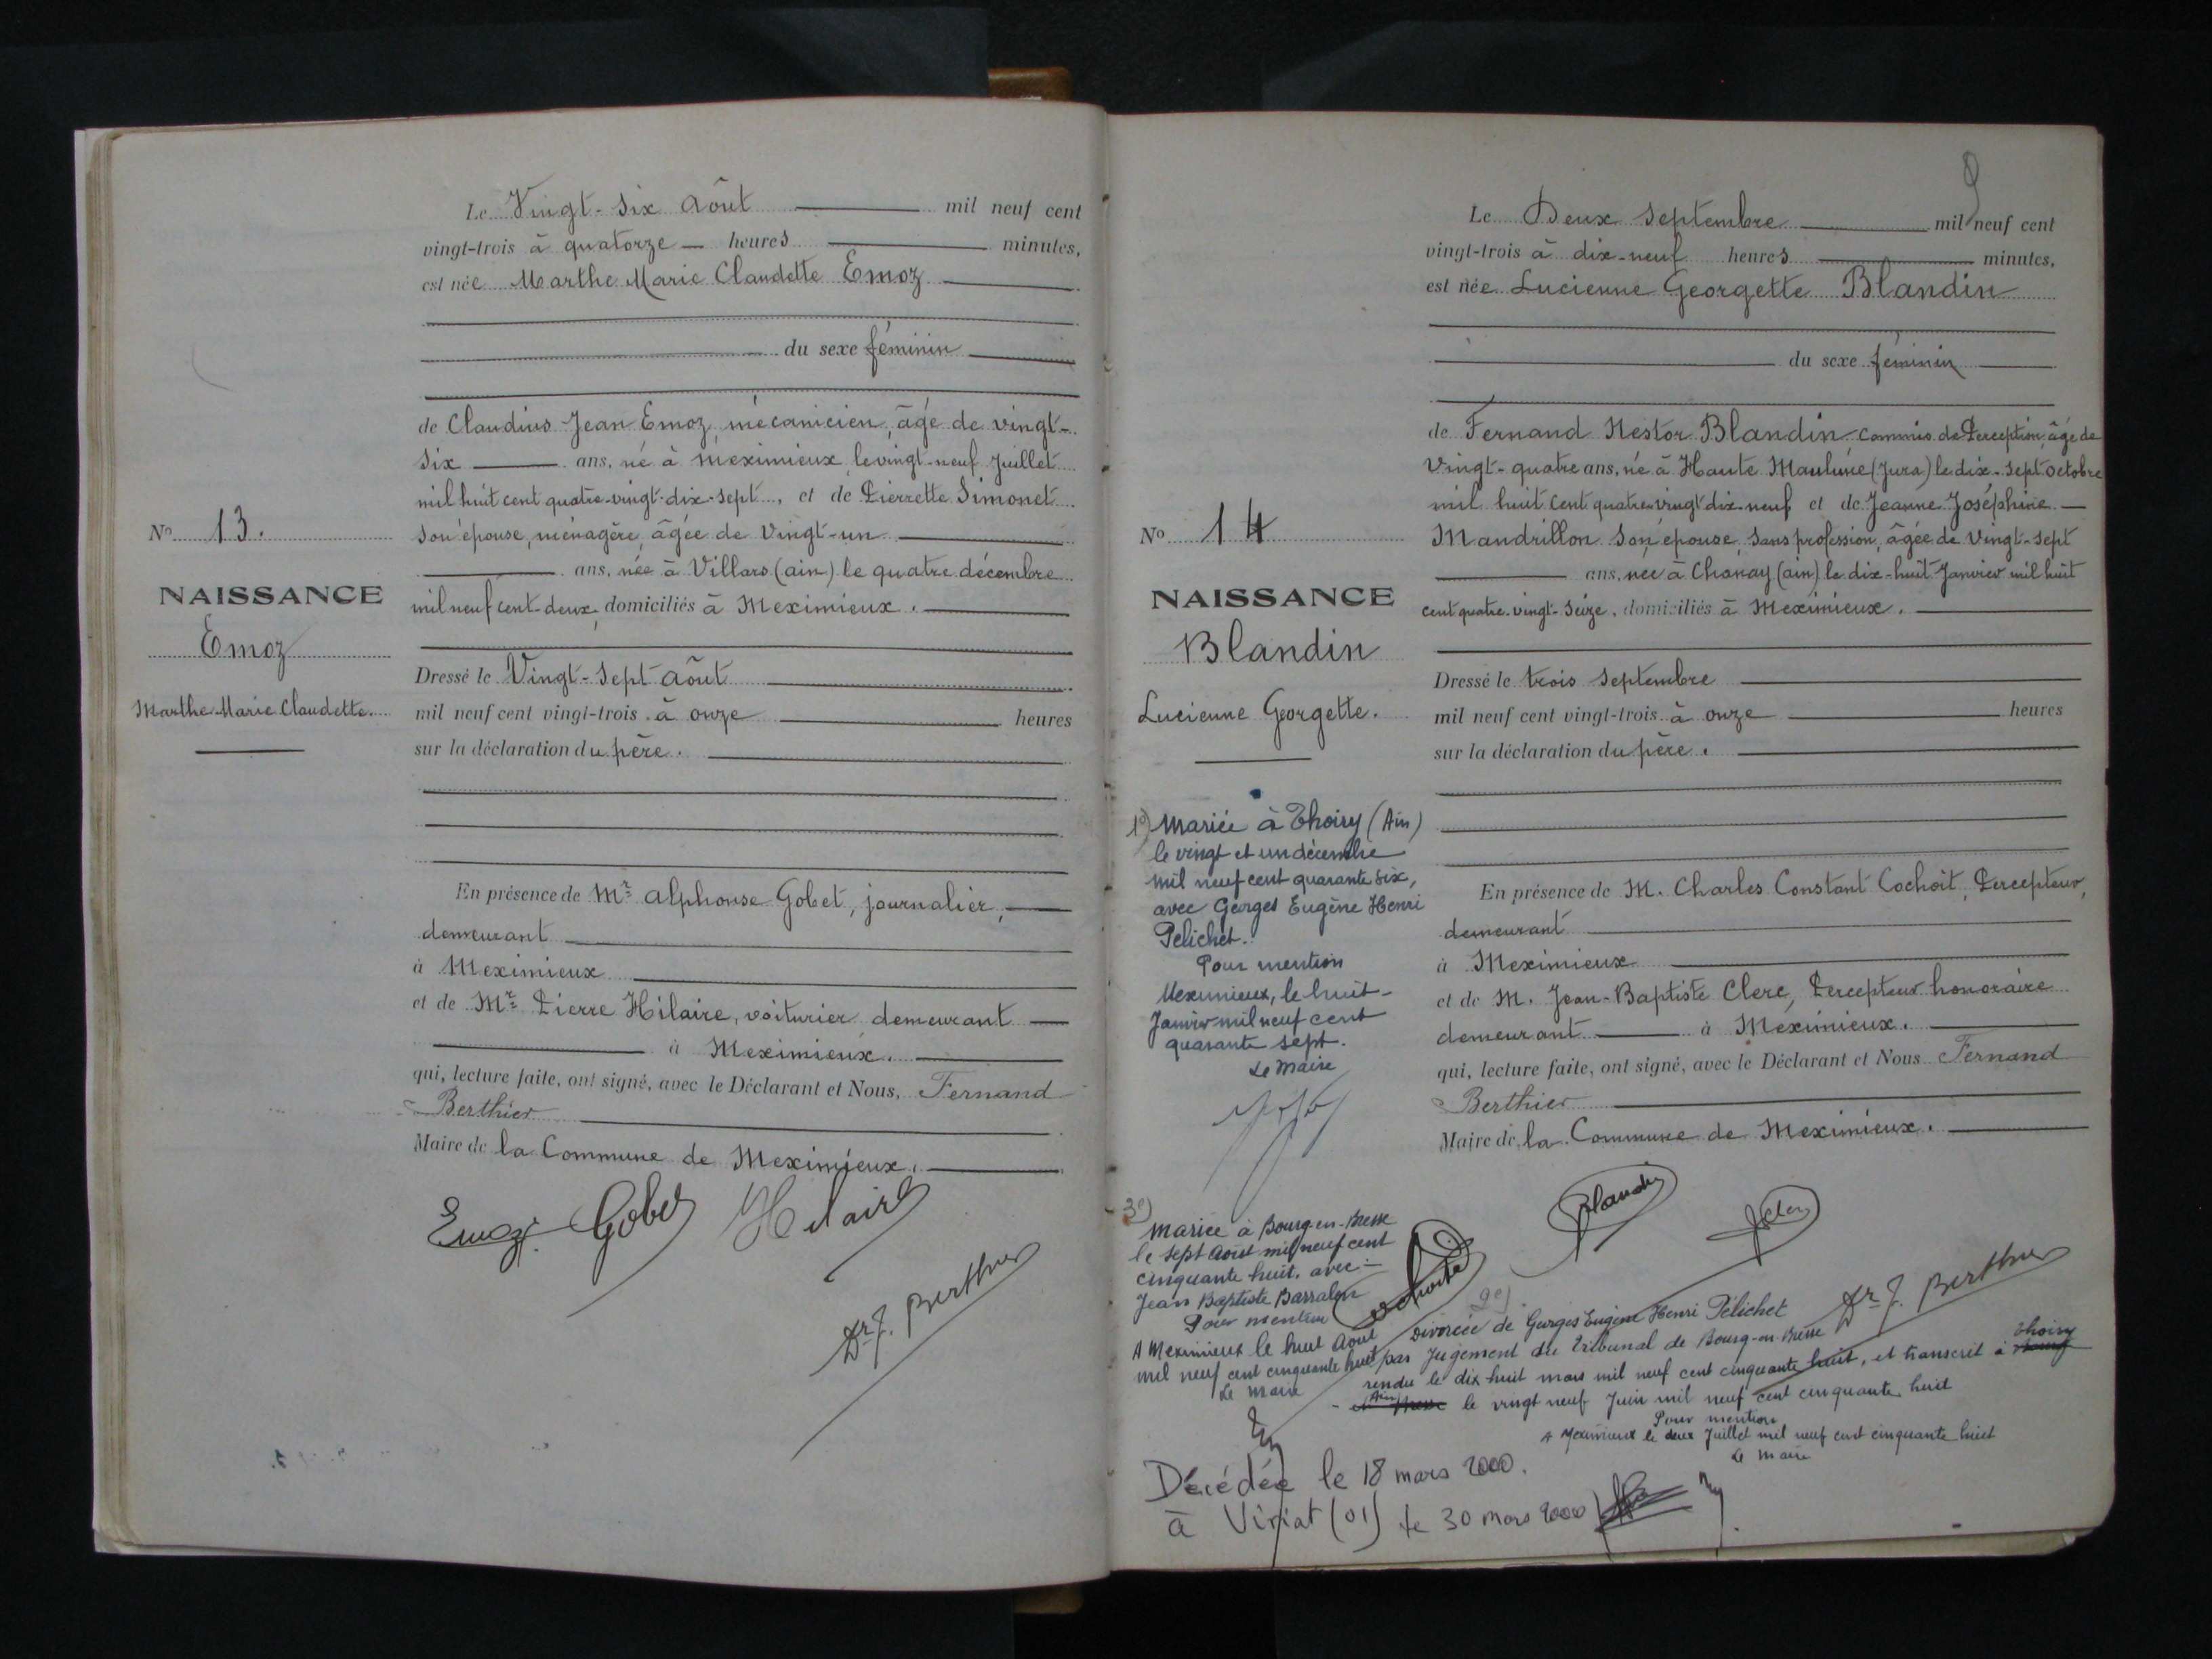 Le Vingt-Six Août mil neuf cent
vingt-trois à quatorze heures minutes,
est née Marthe Marie Claudette Emoz
du sexe féminin
de Claudius Jean Emoz, mécanicien, âgé de vingt-
six ans, né à Meximieux le vingt-neuf Juillet
mil huit cent quatre-vingt-dix-sept, et de Pierrette Simonet
son épouse, ménagère, âgée de Vingt-un
ans, née à Villars (ain) le quatre décembre
mil neuf cent-deux, domiciliés à Meximieux.
No 13.
NAISSANCE
Emoz
Marthe Marie Claudette.
Dressé le Vingt-Sept Août
mil neuf cent vingt-trois à onze heures
sur la déclaration du père.
En présence de Mr Alphonse Gobet, journalier,
demeurant
à Meximieux
et de Mr Pierre Hilaire, voiturier demeurant
à Meximieux.
qui, lecture faite, ont signé, avec le Déclarant et Nous, Fernand
Berthier
Maire de la Commune de Meximieux.
Emoz Gobet Hilaire
Dr F. Berthier
9
Le Deux Septembre mil neuf cent
vingt-trois à dix-neuf heures minutes,
est née Lucienne Georgette Blandin
du sexe féminin
de Fernand Nestor Blandin commis de Perception, âgé de
Vingt-quatre ans, né à Haute Maulurie (Jura) le dix-sept Octobre
mil huit cent quatre vingt dix neuf et de Jeanne Joséphine
Mandrillon Son épouse, Sans profession, âgée de Vingt-sept
ans, née à Chanay (ain) le dix-huit Janvier mil huit
cent quatre-vingt-Seize, domiciliés à Meximieux.
No 14
NAISSANCE
Blandin
Lucienne Georgette.
Dressé le trois Septembre
mil neuf cent vingt-trois à onze heures
sur la déclaration du père.
En présence de M. Charles Constant Cochoit, Percepteur,
demeurant
à Meximieux
et de M. Jean-Baptiste Clerc, Percepteur honoraire
demeurant à Meximieux.
qui, lecture faite, ont signé, avec le Déclarant et Nous Fernand
Berthier
Maire de la Commune de Meximieux.
1e) Mariée à Thoiry (Ain)
le vingt et un décembre
mil neuf cent quarante six,
avec Georges Eugène Henri
Pelichet.
Pour mention
Meximieux, le huit
Janvier mil neuf cent
quarante sept.
Le Maire
Blandin
Clerc
Cochoit
Dr F. Berthier
2e)
Divorcée de Georges Eugène Henri Pélichet
par Jugement du tribunal de Bourg-en-Bresse
rendu le dix huit mars mil neuf cent cinquante huit, et transcrit à Thoiry
Ain le vingt neuf Juin mil neuf cent cinquante huit
Pour mention
A Meximieux le deux Juillet mil neuf cent cinquante huit
Le Maire
3e)
Mariée à Bourg-en-Bresse
le sept Août mil neuf cent
cinquante huit, avec
Jean Baptiste Barralon
Pour mention
A Meximieux le huit Août
mil neuf cent cinquante huit
Le Maire
Décédée le 18 mars 2000.
à Viriat (01) le 30 mars 2000